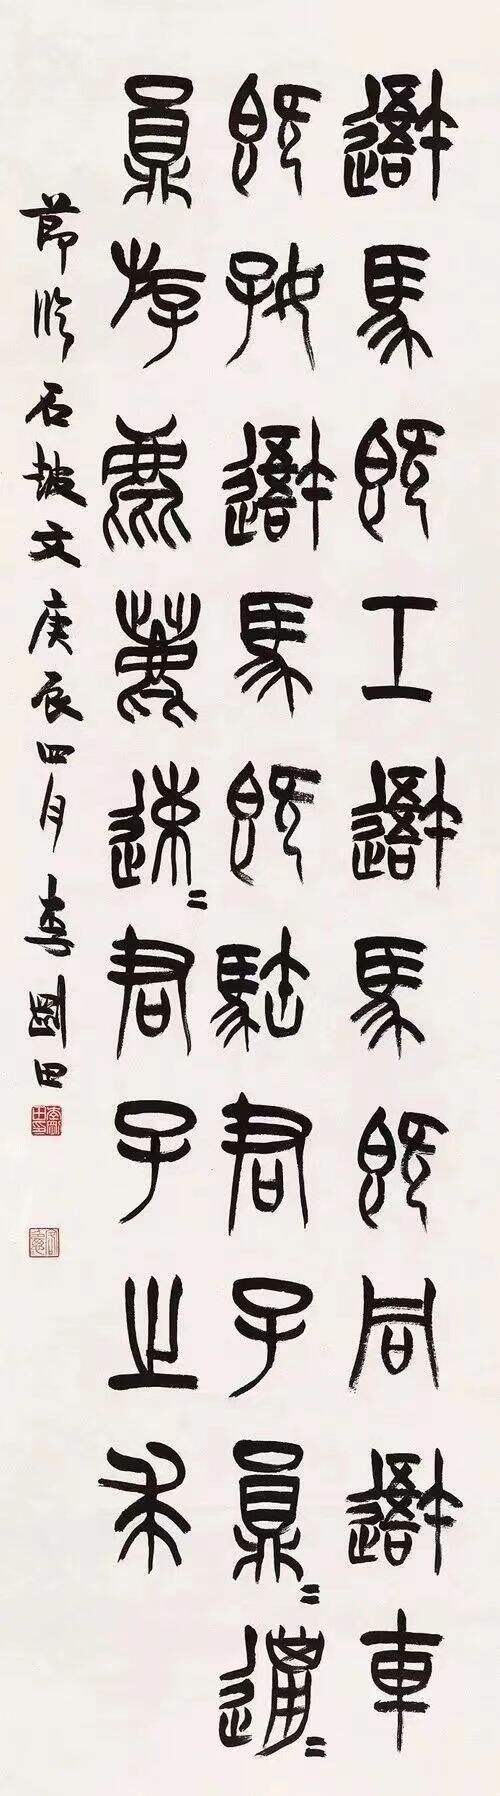 避馬既工避馬既同避車
既好避馬既駓君子員〓邋〓
員斿麀鹿速〓君子之求
節臨石鼓文庚辰四月李圍田